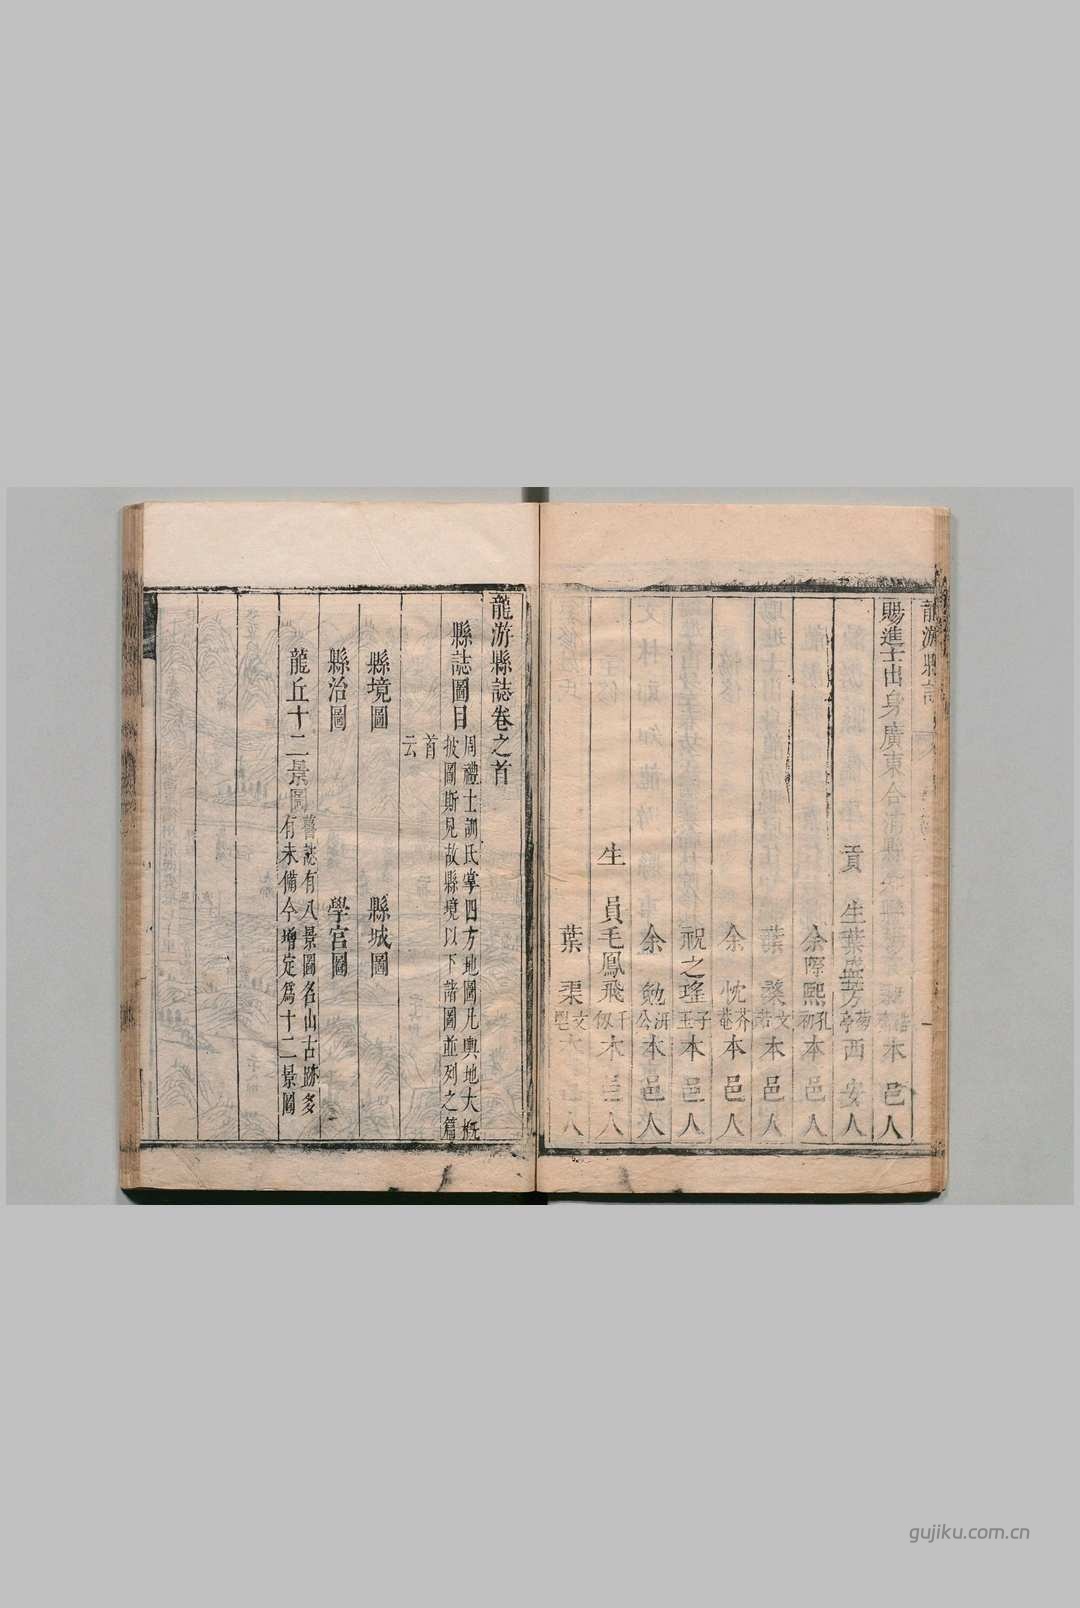 龍游縣誌
賜進士出身廣東合浦縣
本邑人
貢生葉盛芳 菊亭 西安人
余際熙 孔初 本邑人
葉 文 本邑人
余忱 芥菴 本邑人
祝之瑤 子玉 本邑人
余勉 公 本邑人
生員毛鳳飛 千仭 本邑人
葉 文 本邑人
龍游縣誌卷之首
縣誌圖目
周禮土訓氏掌四方地圖凡輿地大概
披圖斯見故縣境以下諸圖並列之篇
首
云
縣境圖 縣城圖
縣治圖 學宮圖
龍丘十二景圖
舊誌有八景圖名山古跡多
有未備今增定爲十二景圖
gujiku.com.cn